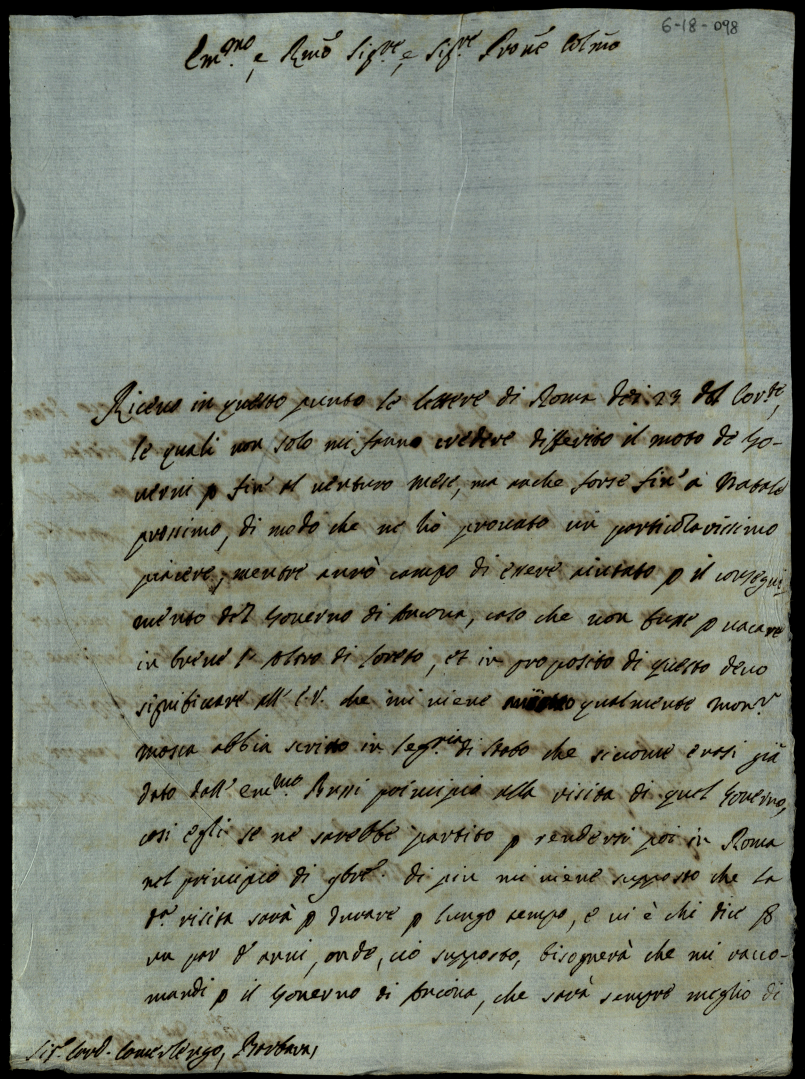 6-18-098
Em.mo e Rmo Sig.re, e Sig.re Prone Colmo
Ricevo in questo punto le lettere di Roma dei 23 del Cor.te,
le quali non solo mi fanno credere differito il moto de Go-
verni p fin' al venturo mese, ma anche forse fin' a Natale
prossimo, di modo che ne hò provato un particolarissimo
piacere, mentre avrò campo di essere aiutato p il consegui-
mento del Governo di Ancona, caso che non fusse p vacare
in breve l' Altro di Loreto, et in proposito di questo devo
significare all' E.V. che mi viene qualmente Mon.r
Mosca abbia scritto in Seg.ria di Stato che siccome erasi già
dato dall' Em.mo Bussi principio alla visita di quel Governo,
così egli se ne sarebbe partito p rendersi poi in Roma
nel principio di 9bre. Di più mi viene supposto che la
d.a visita sarà p durare p lungo tempo, e vi è chi dice p
un par d' anni, onde, ciò supposto, bisognerà che mi racco-
mandi p il Governo di Ancona, che sarà sempre meglio di
Sig.r Card. Camerlengo, Barbara,